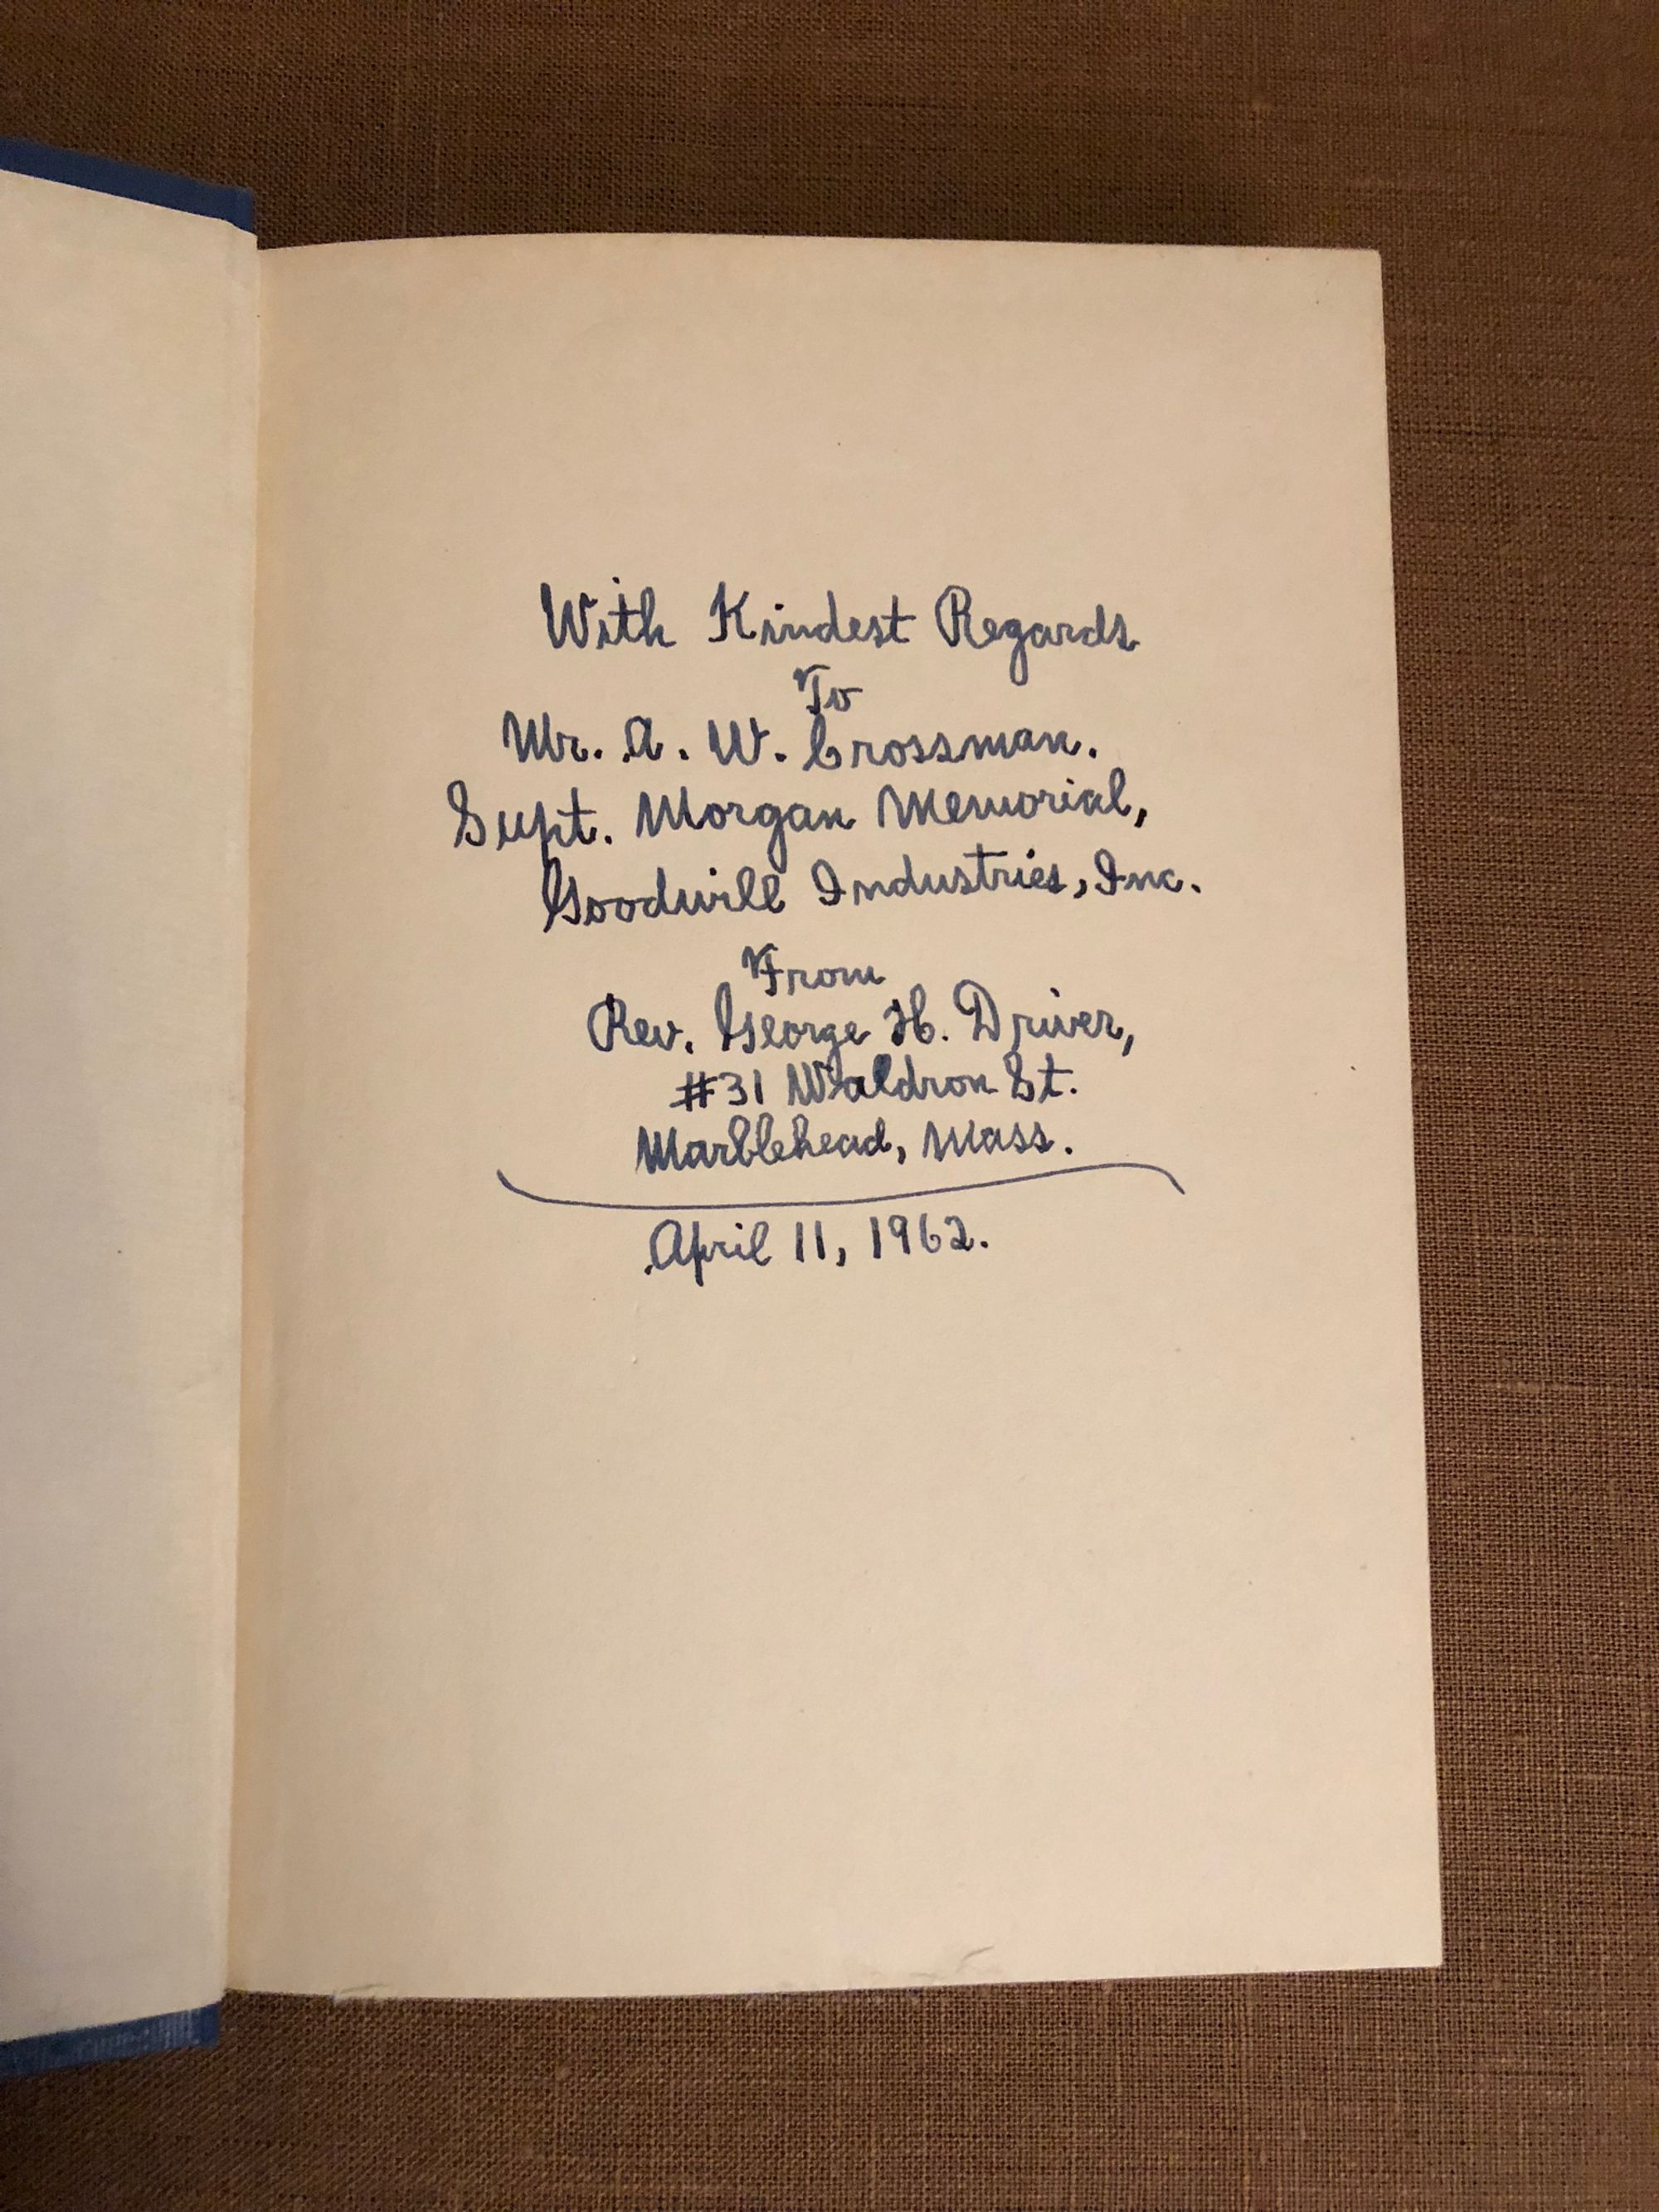 With Kindest Regards
To
Mr. A. W. Crossman.
Supt. Morgan Memorial,
Goodwill Industries, Inc.
From
Rev. George H. Driver,
#31 Waldron St.
Marblehead, Mass.
April 11, 1962.